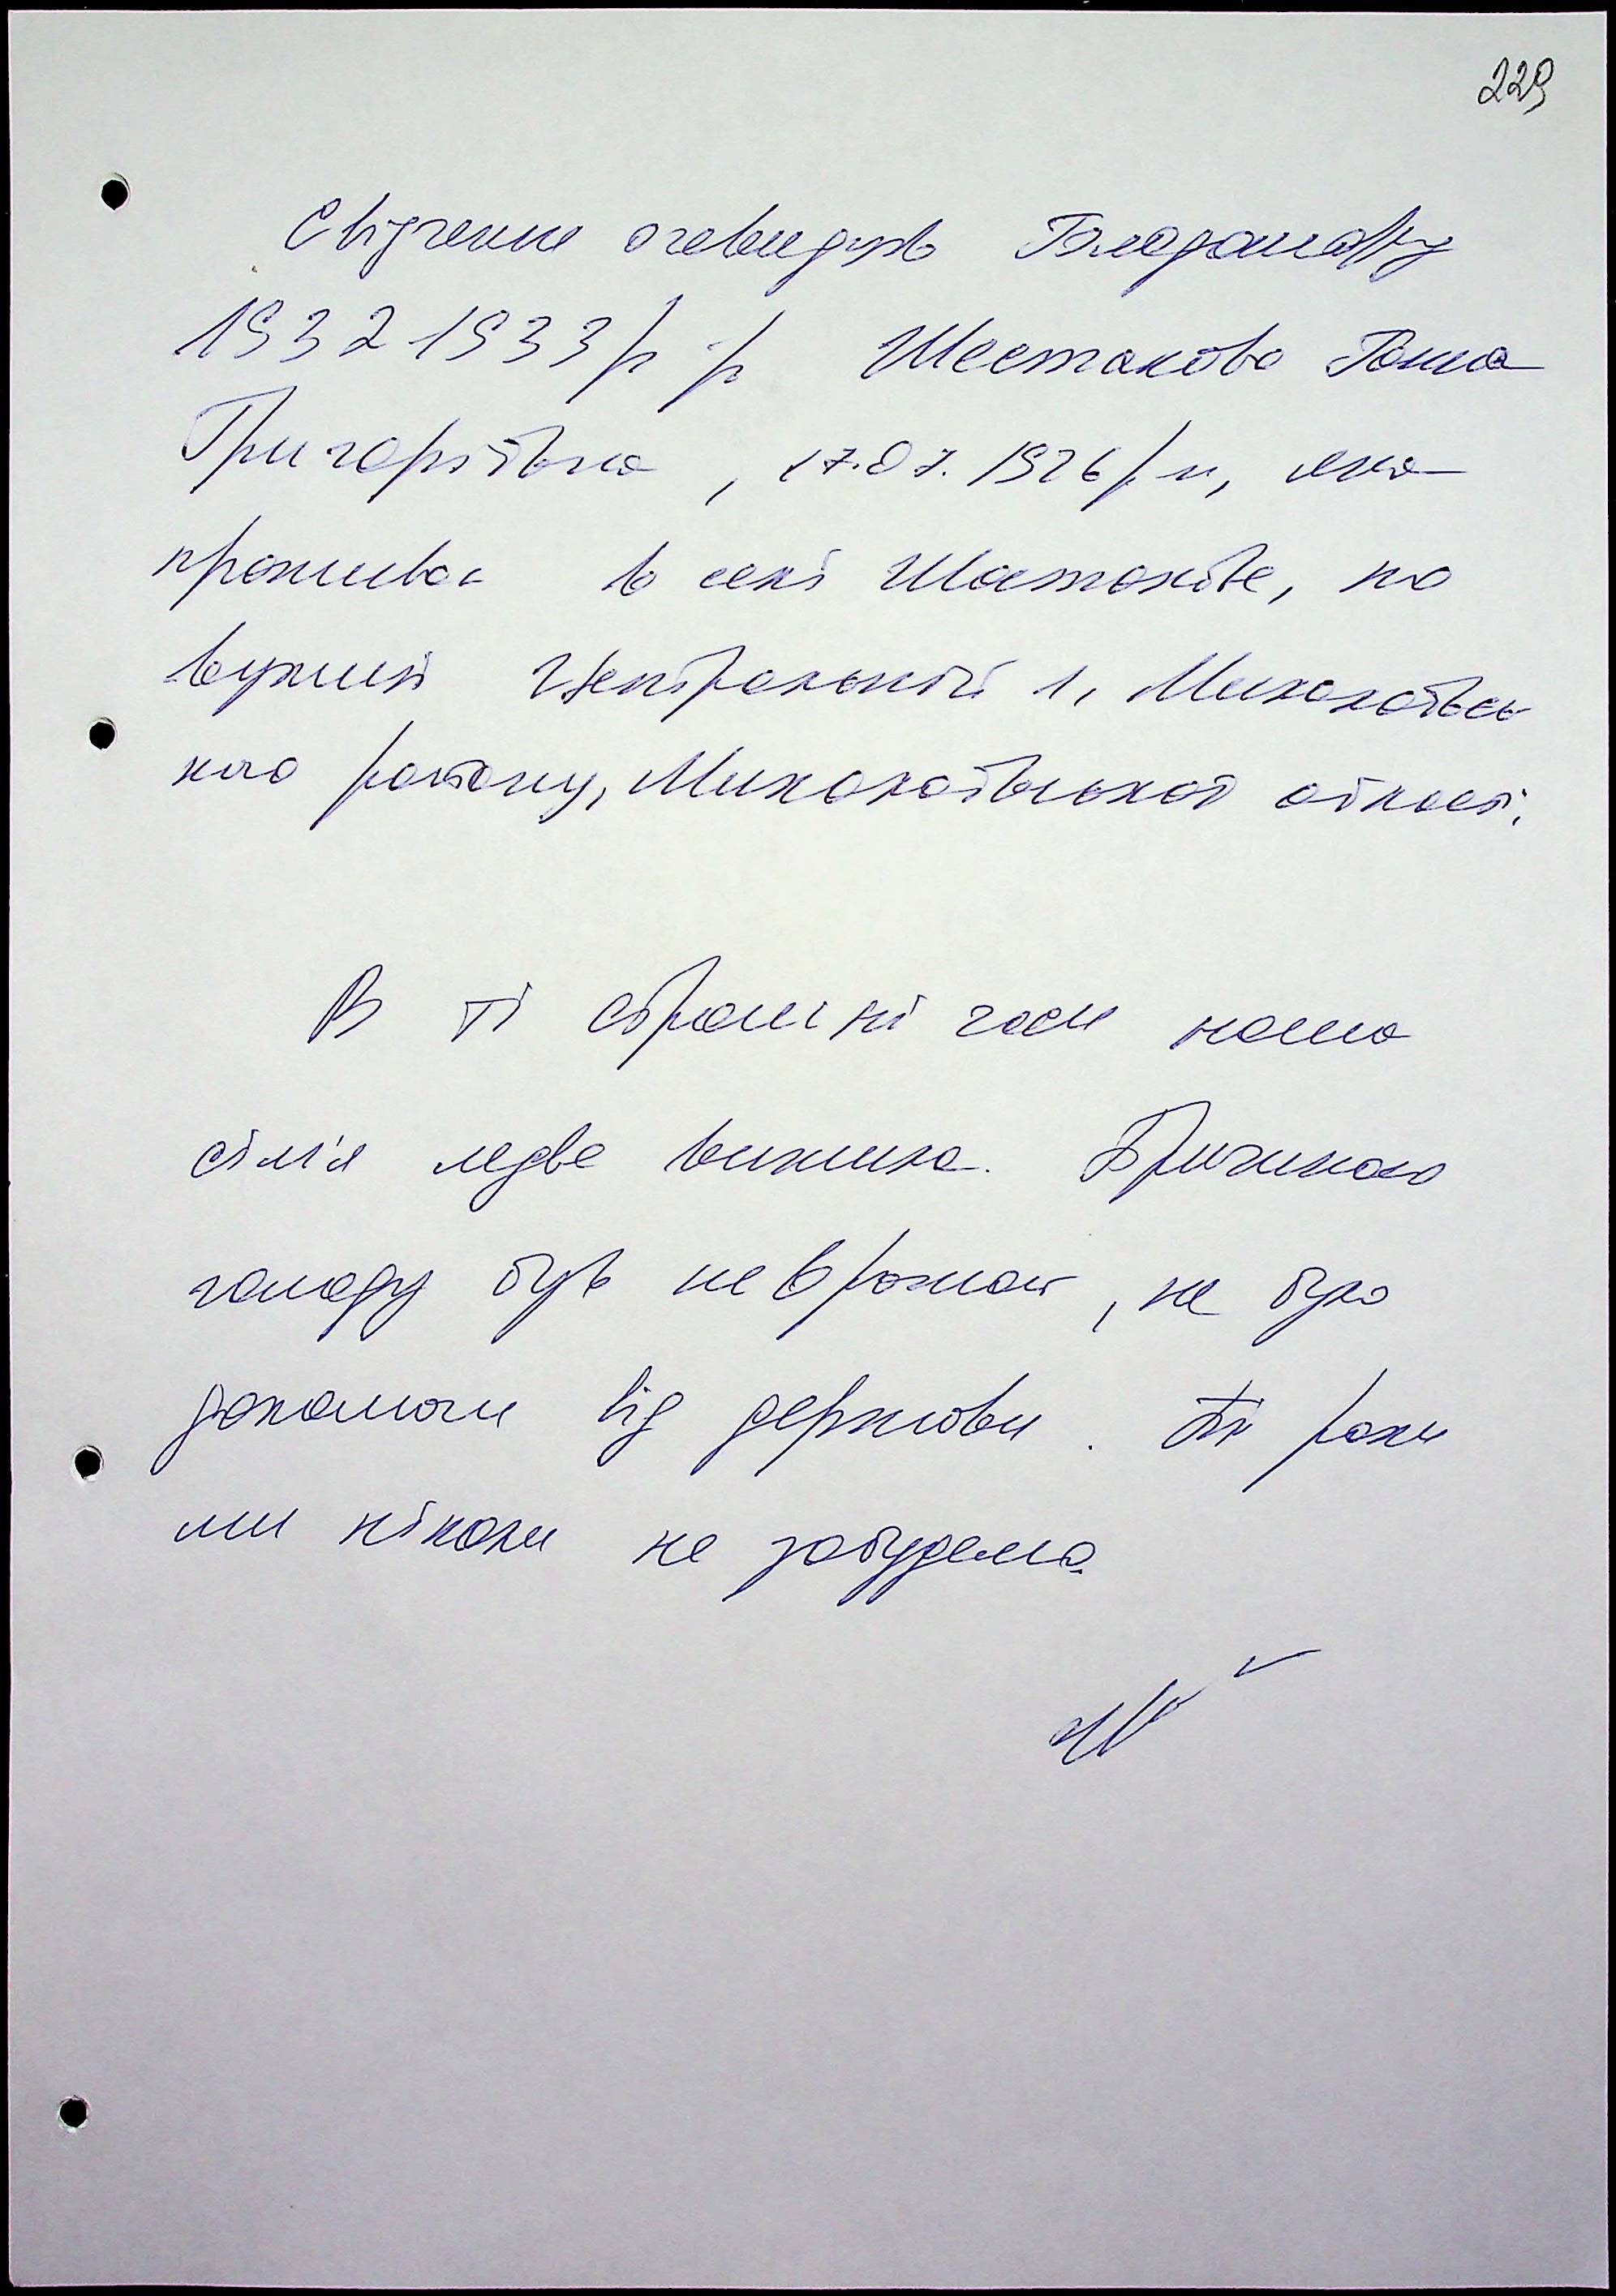 229
Свідчення очевидців Голодомору
1932-1933р.р Шестакова Ганна
Григорівна, 17.07.1926 р.н, яка
проживає в селі Шостакове, по
вулиці Центральній 1, Миколаївсь
кого району, Миколаївської області.
В ті страшні часи наша
сім'я ледве вижила. Причиною
голоду був не врожай, не було
допомоги від держави. Ті роки
ми ніколи не забудемо.